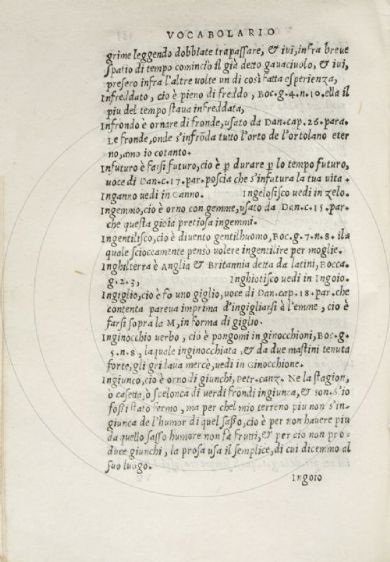 VOCABOLARIO
grime leggendo dobbiate trapassare, & ivi, infra breue
spatio di tempo comincìo il già detto gauaciuolo, & ivi,
presero infra l'altre uolte un di così fatta esperienza,
Infreddato, cio è pieno di freddo, Boc.g.4.n.10.ella il
piu del tempo staua infreddata,
Infrondo è ornare di fronde, usato da Dan.cap.26.para.
Le fronde, onde s'infrōda tutto l'orto de l'ortolano eter
no, amo io cotanto.
Infuturo è farsi futuro, cio è p durare p lo tempo futuro,
uoce di Dan.c.17.par.poscia che s'infutura la tua uita.
Inganno uedi in Ganno. Ingelosisco uedi in zelo.
Ingemmo, cio è orno con gemme, usato da Dan.c.15.par.
che questa gioia pretiosa ingemmi.
Ingentilisco, cio è diuento gentilhuomo, Boc.g.7.n.8. ila
quale scioccamente penso uolere ingentilire per moglie.
Inghilterra è Anglia & Britannia detta da latini, Bocca.
g.2.3, Inghiotisco uedi in Ingoio.
Ingiglio, cio è fo uno giglio, uoce di Dan.cap.18.par.che
contenta pareua imprima d'ingigliarsi à l'emme, cio è
farsi sopra la M, in forma di giglio.
Inginocchio uerbo, cio è pongomi in ginocchioni, Boc.g.
5.n.8, la quale inginocchiata, & da due mastini tenuta
forte, gli gridaua mercè, uedi in Ginocchione.
Ingiunco, cio è orno di giunchi, Petr.canz. Ne la stagion,
ò casetta, ò spelonca di uerdi frondi ingiunca, & son.S'io
fossi stato fermo, ma per chel mio terreno piu non s'in-
giunca de l'humor di quel sasso, cio è per non hauere piu
da quello sasso humore non fa frutti, & per cio non pro-
duce giunchi, la prosa usa il semplice, di cui dicemmo al
suo luogo.
Ingoio